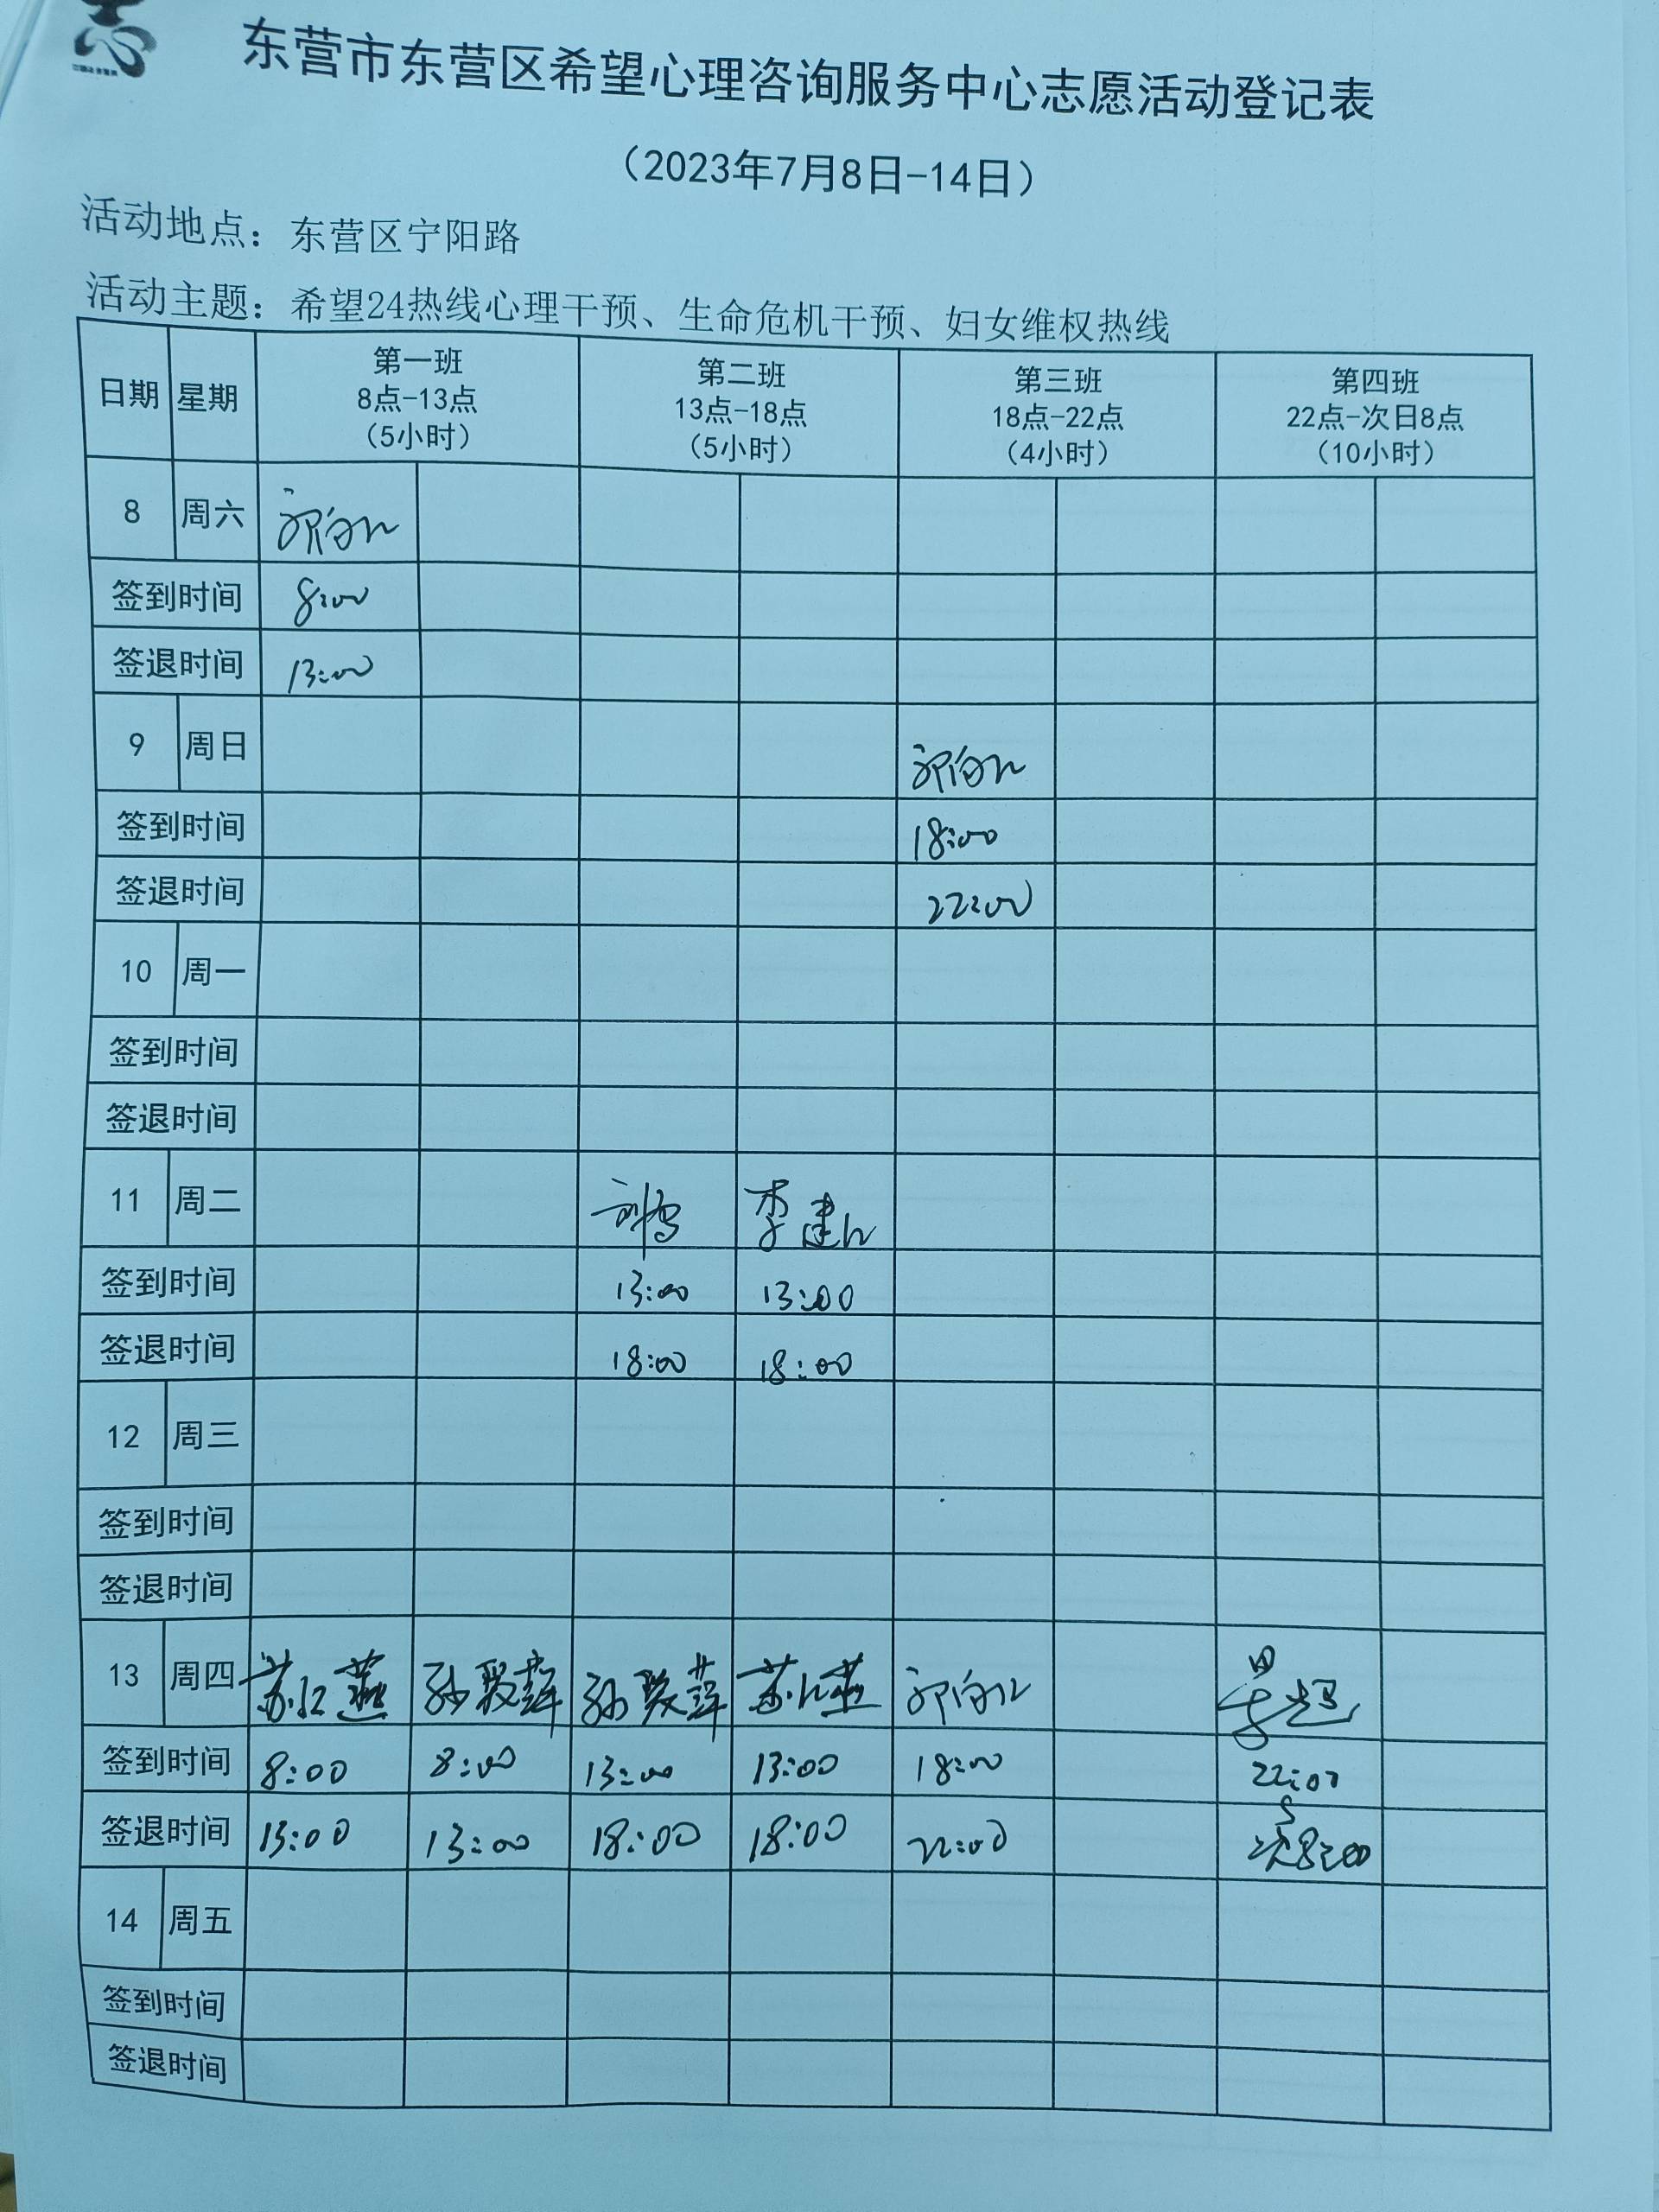 东营市东营区希望心理咨询服务中心志愿活动登记表
（2023年7月8日-14日）
活动地点：东营区宁阳路
活动主题：希望24热线心理干预、生命危机干预、妇女维权热线
日期 星期 第一班 8点-13点 （5小时） 第二班 13点-18点 （5小时） 第三班 18点-22点 （4小时） 第四班 22点-次日8点 （10小时）
8 周六
签到时间 8:00
签退时间 13:00
9 周日
签到时间 18:00
签退时间 22:00
10 周一
签到时间
签退时间
11 周二 李建
签到时间 13:00 13:00
签退时间 18:00 18:00
12 周三
签到时间
签退时间
13 周四
签到时间 8:00 8:00 13:00 13:00 18:00 22:00
签退时间 13:00 13:00 18:00 18:00 22:00 次8:00
14 周五
签到时间
签退时间